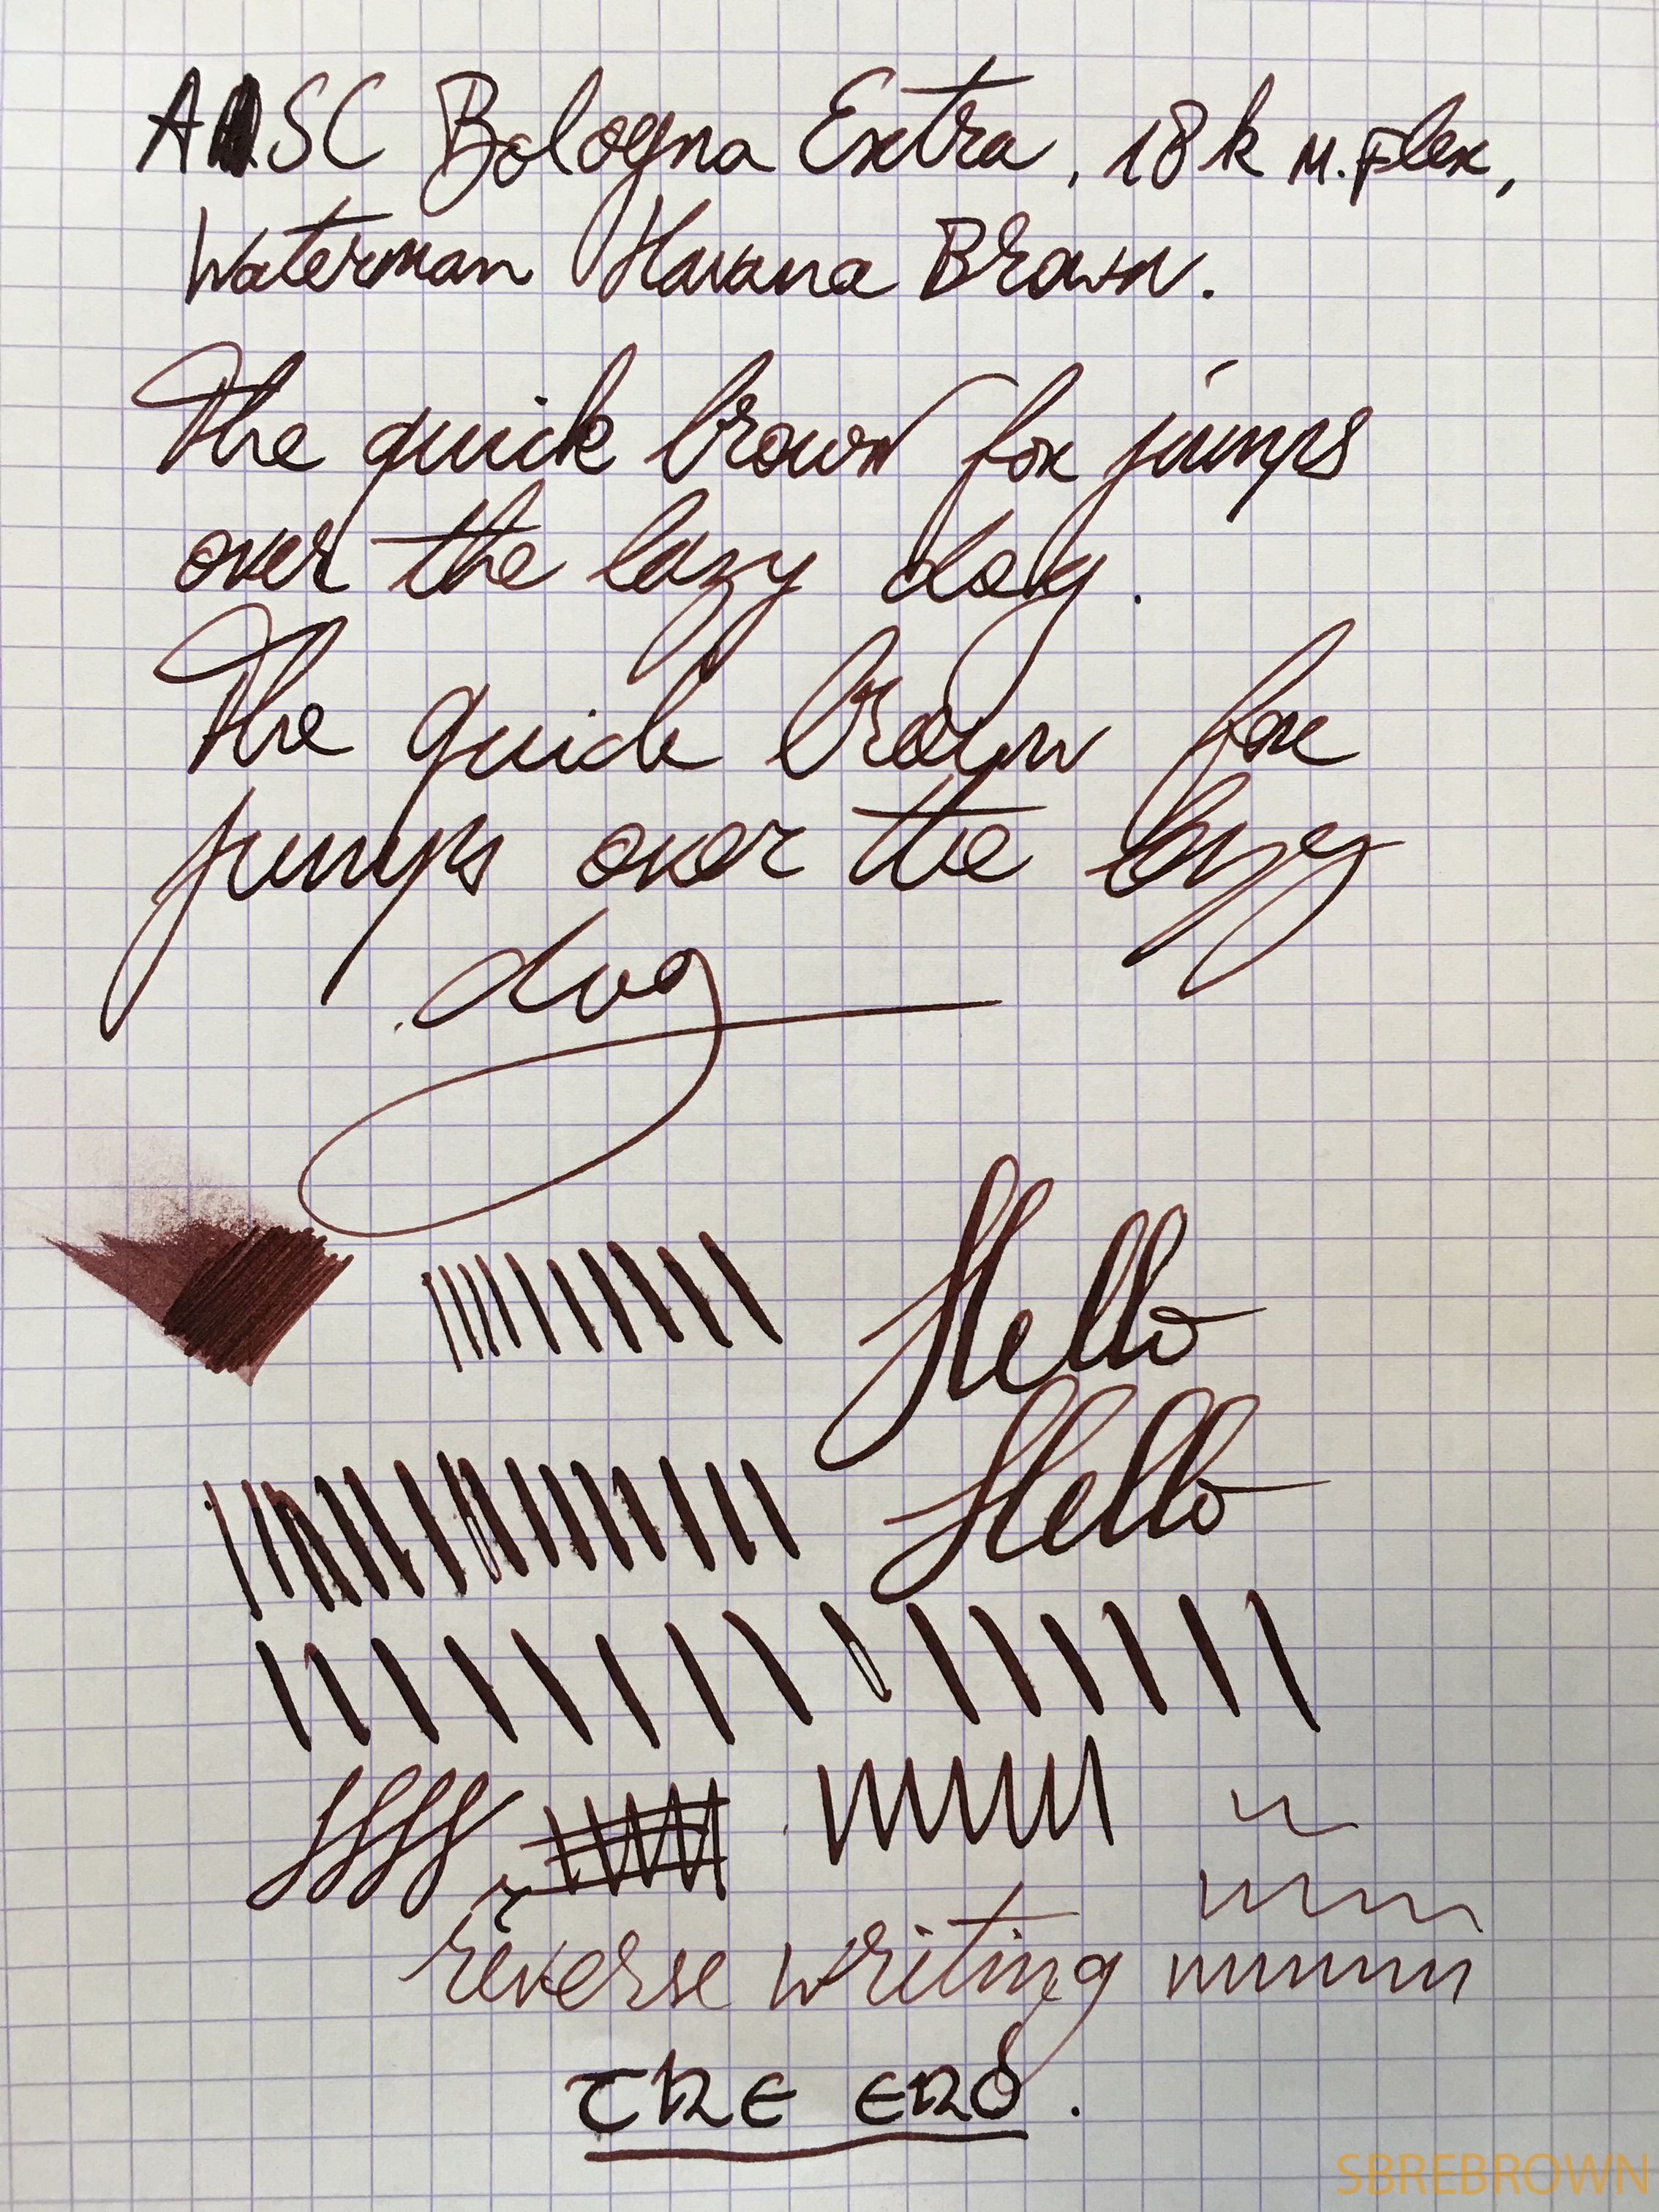 ASC Bologna Extra, 18k M. Flex,
Waterman Havana Brown.
The quick brown fox jumps
over the lazy dog.
The quick brown fox
jumps over the lazy
dog
Hello
Hello
reverse writing
THE END.
SBREBROWN